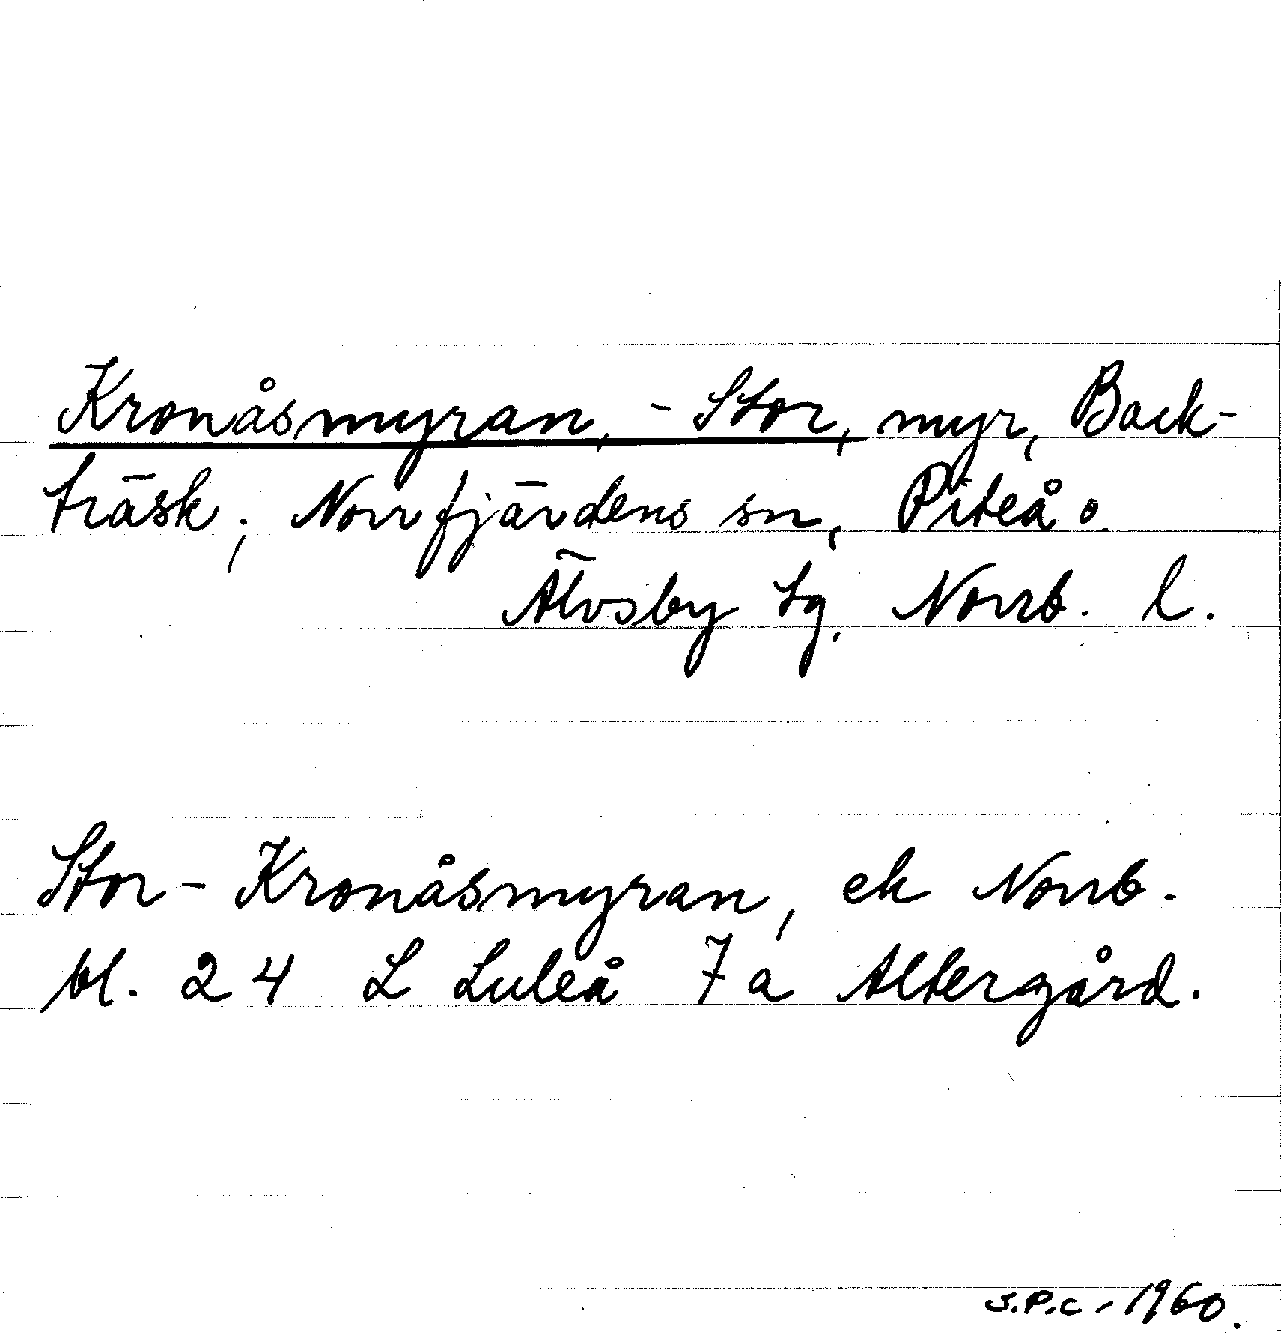 Kronåsmyran, - Stor, myr, Back-
träsk, Norrfjärdens sn, Piteå o.
Älvsby tg. Norrb. l.
Stor-Kronåsmyran, ek Norrb.
bl. 24 L Luleå 7 a Altergård.
J.P.C. - 1960.